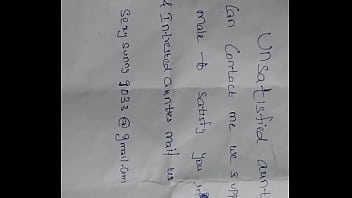 Unsatisfied aunt
Can Contact me we supp
male to satisfy you
& Intrested aunties mail us
Sexy sunny 9033 @ gmail.com